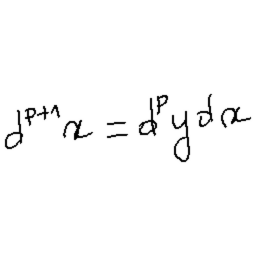 d^{p+1}x = d^p y d x